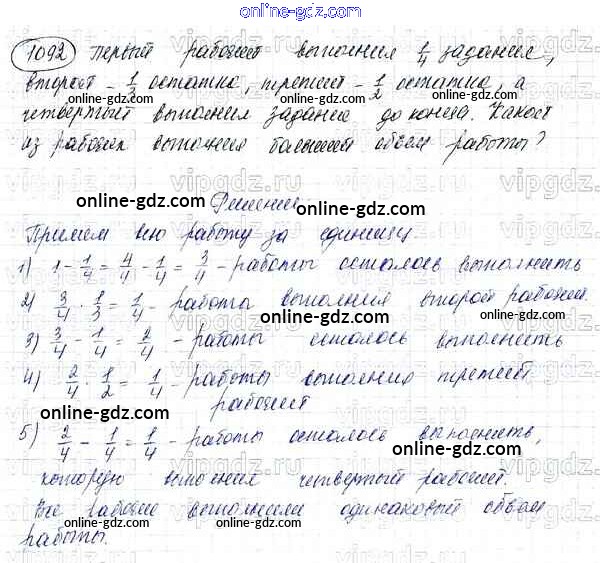 online-gdz.com
1092 Первый рабочий выполнил 1/4 задания,
второй - 1/3 остатка, третий - 1/2 остатка, а
online-gdz.com online-gdz.com
четвертый выполнил задание до конца. Какой
из рабочих выполнил больший объем работы?
online-gdz.com online-gdz.com
vipgdz.ru vipgdz.ru vipgdz.ru
Решение
online-gdz.com online-gdz.com
Примем всю работу за единицу
1) 1 - 1/4 = 4/4 - 1/4 = 3/4 - работы осталось выполнить
online-gdz.com online-gdz.com
2) 3/4 · 1/3 = 1/4 - работы выполнил второй рабочий.
online-gdz.com online-gdz.com
3) 3/4 - 1/4 = 2/4 - работы осталось выполнить
online-gdz.com online-gdz.com
4) 2/4 · 1/2 = 1/4 - работы выполнил третий
рабочий
online-gdz.com online-gdz.com
5) 2/4 - 1/4 = 1/4 - работы осталось выполнить,
online-gdz.com online-gdz.com
которую выполнил четвертый рабочий.
Все рабочие выполнили одинаковый объем
online-gdz.com online-gdz.com
работы.